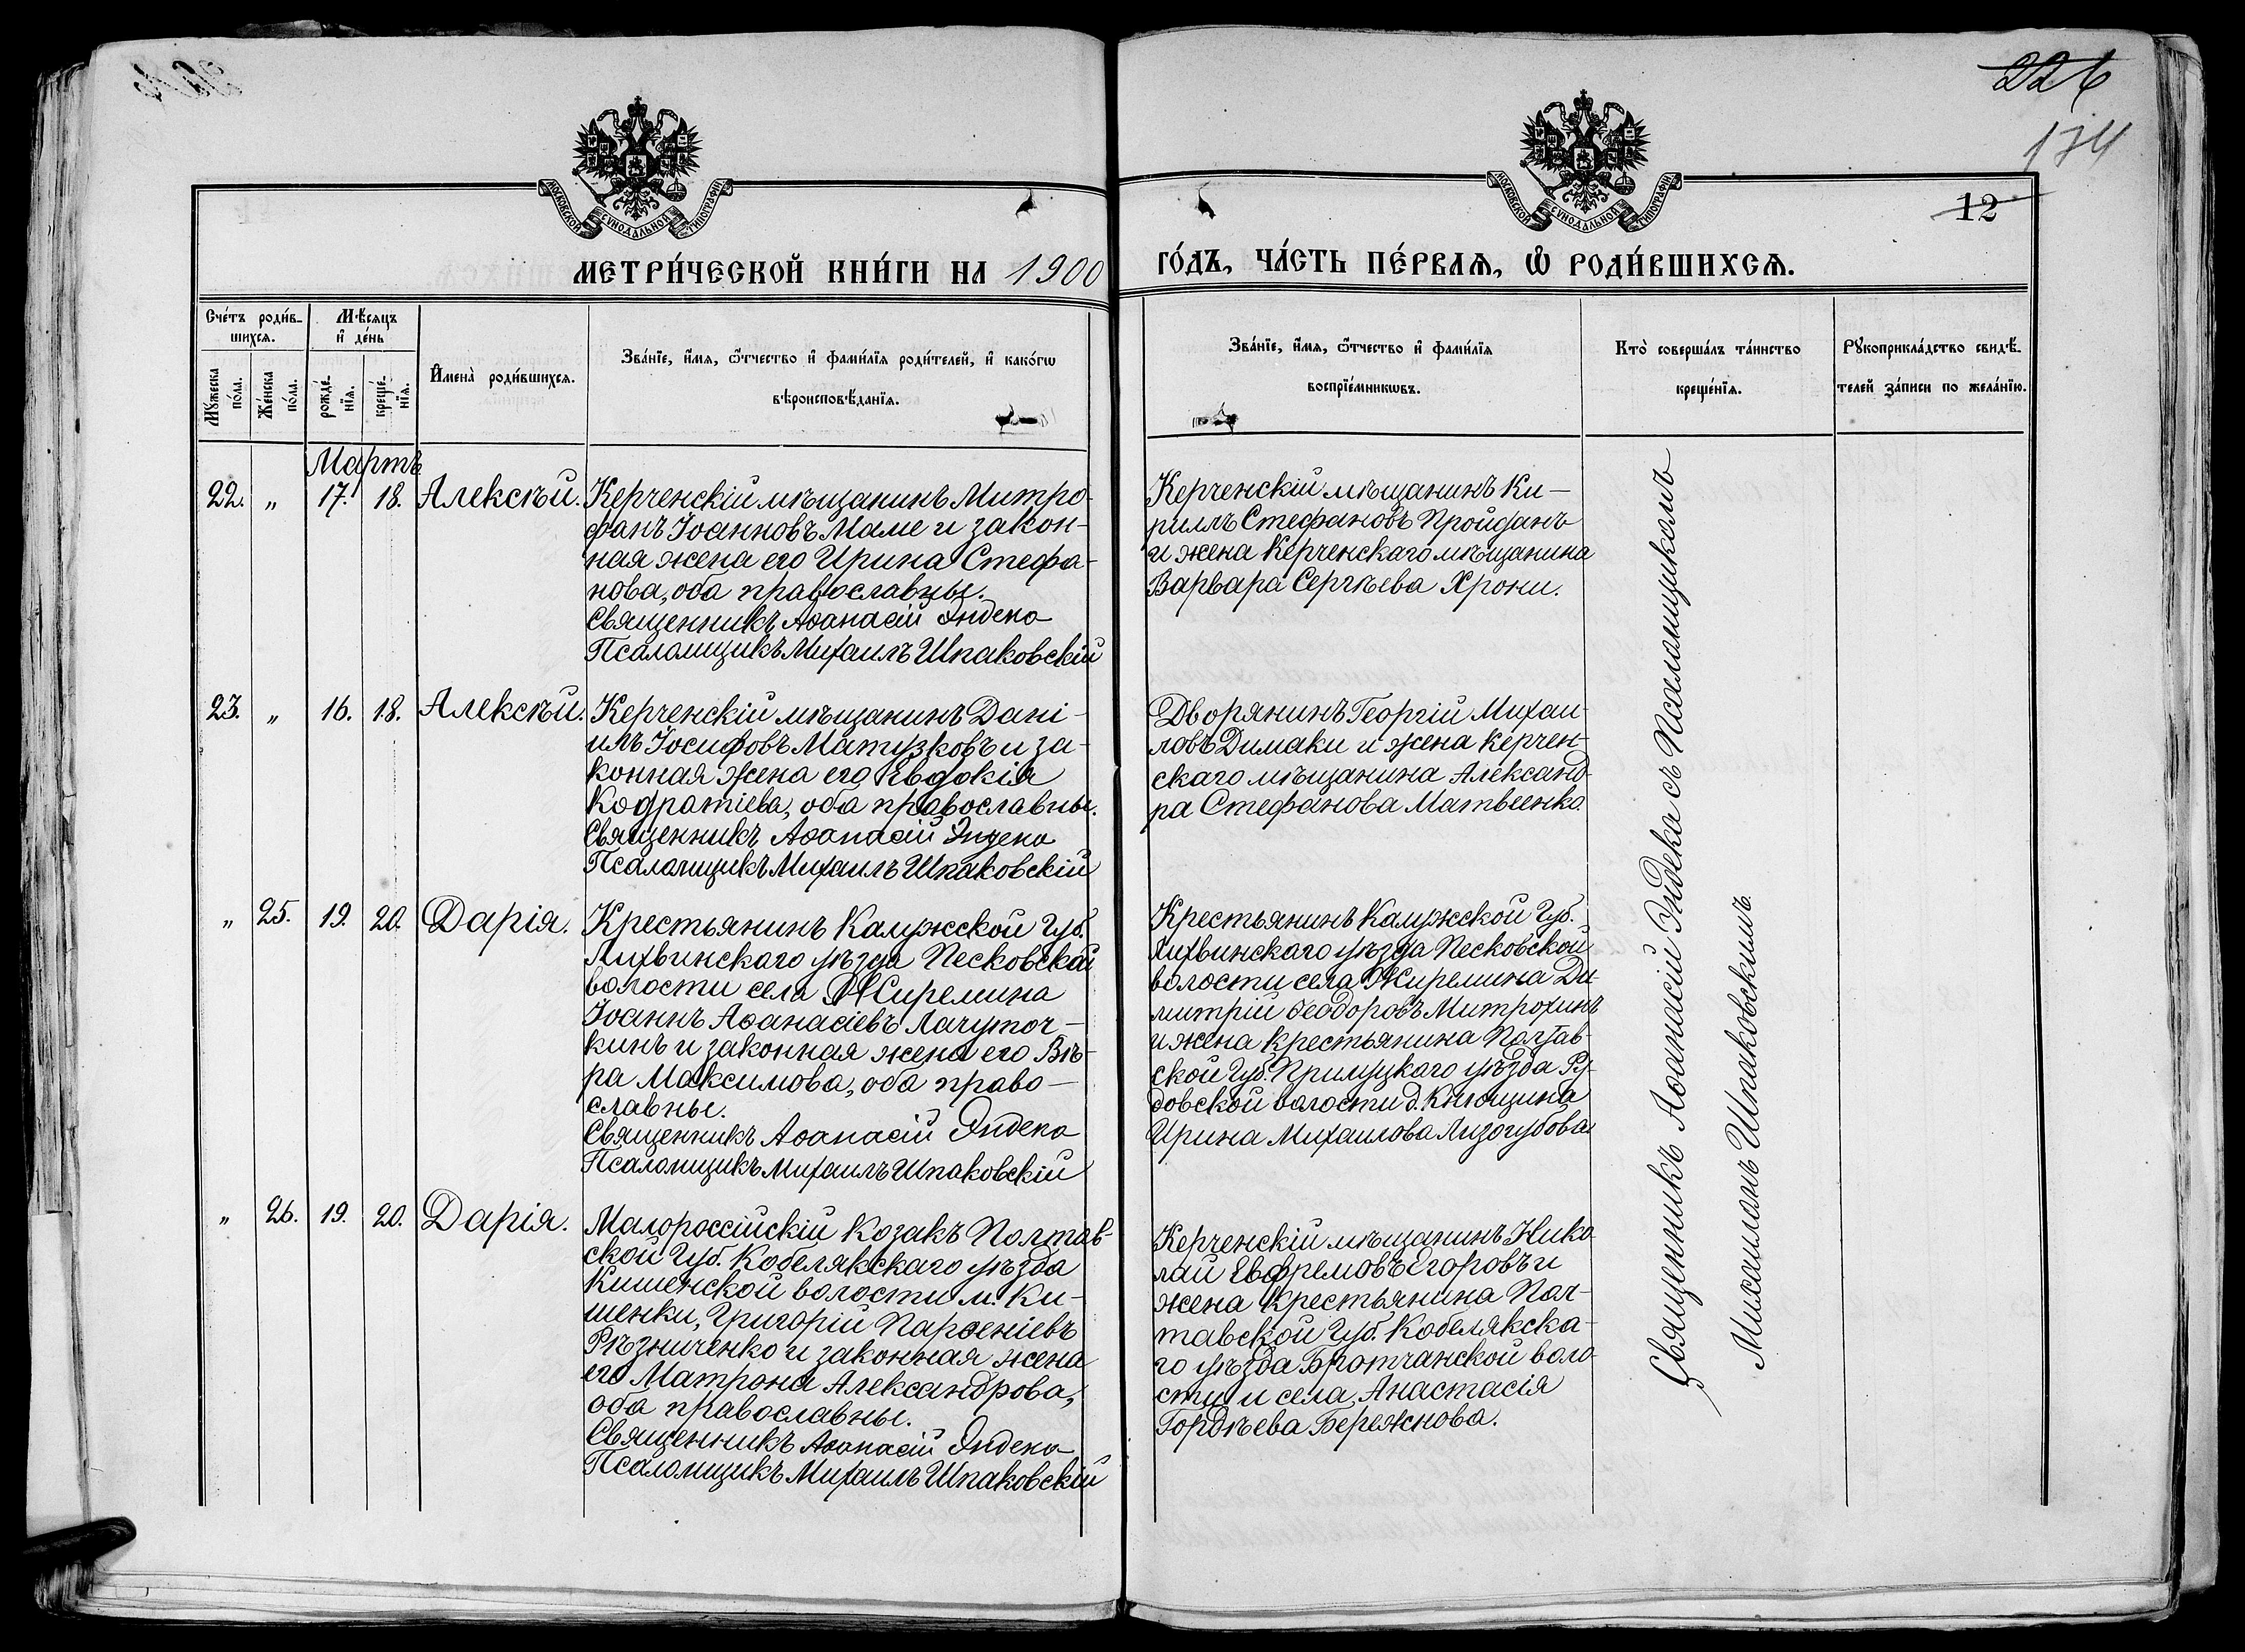 226
174
12
МОСКОВСКОЙ СѴНОДАЛЬНОЙ ТИПОГРАФІИ
МОСКОВСКОЙ СѴНОДАЛЬНОЙ ТИПОГРАФІИ
МЕТРИ́ЧЕСКОЙ КНИ́ГИ НА 1900 ГО́ДЪ, ЧА́СТЬ ПЕ́РВАѦ, Ѡ҆ РОДИ́ВШИХСѦ.
Сче́тъ роди́в-
шихсѧ.
Мꙋ́жеска по́ла.
Же́нска по́ла.
Мѣ́сѧцъ
и҆ де́нь
рожде́-
нїѧ.
креще́-
нїѧ.
И҆мена̀ роди́вшихсѧ.
Зва́нїе, и҆́мѧ, ѻ҆́тчество и҆ фами́лїѧ роди́телей, и҆ како́гѡ
вѣроисповѣ́данїѧ.
Зва́нїе, и҆́мѧ, ѻ҆́тчество и҆ фами́лїѧ
воспрїе́мникѡвъ.
Кто̀ соверша́лъ та́инство
креще́нїѧ.
Рꙋкоприкла́дство свидѣ́-
телей за́писи по жела́нїю.
Мартъ
22. „ 17. 18. Алексѣй.
Керченскій мѣщанинъ Митро-
фанъ Іоанновъ Маме и закон-
ная жена его Ирина Стефа-
нова, оба православны.
Священникъ Аѳанасій Эндека
Псаломщикъ Михаилъ Шпаковскій
Керченскій мѣщанинъ Ки-
риллъ Стефановъ Пройданъ
и жена Керченскаго мѣщанина
Варвара Сергѣева Хрони.
23. „ 16. 18. Алексѣй.
Керченскій мѣщанинъ Дані-
илъ Іосифовъ Матузковъ и за-
конная жена его Евдокія
Кодратіева, оба православны.
Священникъ Аѳанасій Эндека
Псаломщикъ Михаилъ Шпаковскій
Дворянинъ Георгій Михаи-
ловъ Димаки и жена керчен-
скаго мѣщанина Александ-
ра Стефанова Матвеенко.
„ 25. 19. 20. Дарія.
Крестьянинъ Калужской Губ.
Лихвинскаго уѣзда Песковской
волости села Жиремина
Іоаннъ Аѳанасіевъ Лачуточ-
кинъ и законная жена его Вѣ-
ра Максимова, оба право-
славны.
Священникъ Аѳанасій Эндека
Псаломщикъ Михаилъ Шпаковскій
Крестьянинъ Калужской Губ.
Лихвинскаго уѣзда Песковской
волости села Жиремина Ди-
митрій Ѳеодоровъ Митрохинъ
и жена крестьянина Полтав-
ской Губ. Прилуцкаго уѣзда Ру-
довской волости д.
Ирина Михаилова Лизогубова
„ 26. 19. 20. Дарія.
Малороссійскій козакъ Полтав-
ской Губ. Кобелякскаго уѣзда
Кишенской волости м. Ки-
шенки, Григорій Парѳеніевъ
Рѣзниченко и законная жена
его Матрона Александрова,
оба православны.
Священникъ Аѳанасій Эндека
Псаломщикъ Михаилъ Шпаковскій
Керченскій мѣщанинъ Нико-
лай Евфремовъ Егоровъ и
жена крестьянина Пол-
тавской Губ. Кобелякска-
го уѣзда Бротчанской воло-
сти и села, Анастасія
Гордѣева Бережнова.
Священникъ Аѳанасій Эндека съ Псаломщикомъ
Михаиломъ Шпаковскимъ